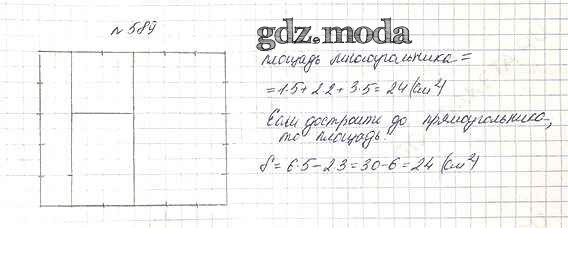 №589
gdz.moda
площадь многоугольника =
= 1·5 + 2·2 + 3·5 = 24 (см²)
Если достроить до прямоугольника,
то площадь:
S = 6·5 - 2·3 = 30 - 6 = 24 (см²)